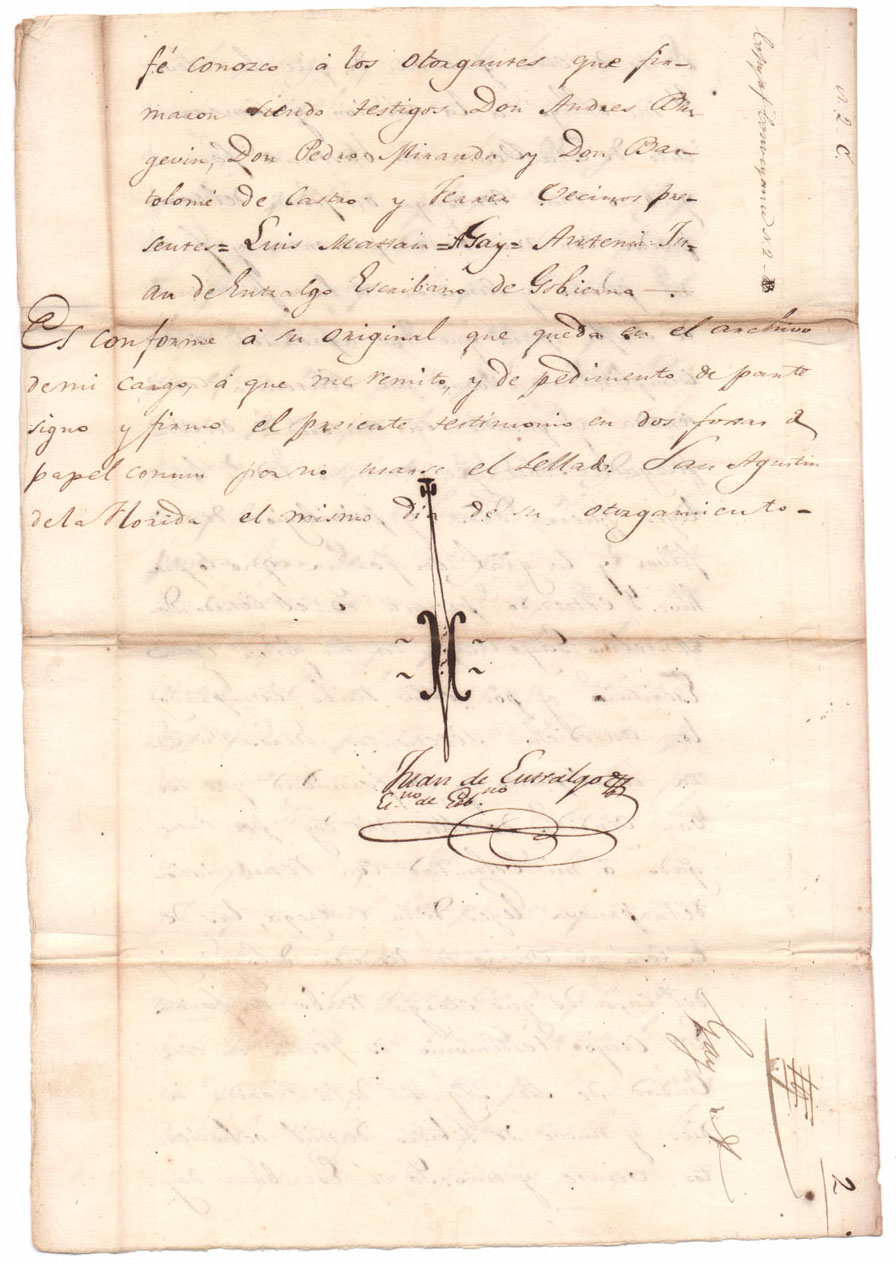 fé conozco á los otorgantes que fir-
maron siendo testigos Don Andres Bur-
gevin, Don Pedro Miranda y Don Bar-
tolomé de Castro y Ferrer Vecinos pre-
sentes= Luis Mattair = A Gay= Antemi: Ju-
an de Entralgo Escribano de Gobierno —.
Es conforme á su original que queda en el archivo
de mi cargo, á que me remito, y de pedimento de parte
signo y firmo el presente testimonio en dos foxas de
papel comun por no usarse el sellado. San Agustin
de la Florida el mismo dia de su otorgamiento-
Juan de Entralgo
Esno de Gobno
Copy of Conveyance N. 2
N. 2 C.
Gay
2